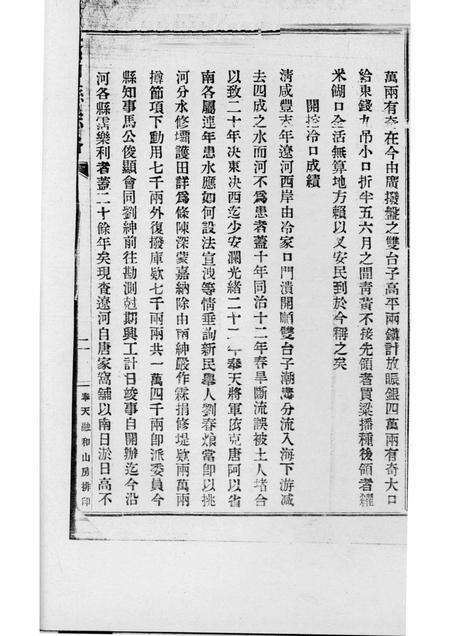 萬兩有奇在今由廣撥盤之雙台子高平兩鎮計放賑銀四萬兩有奇大口
給東錢九吊小口折半五六月之間青黃不接先領者買粱播種後領者糴
米餬口全活無算地方賴以乂安民到於今稱之矣
開挖冷口成績
清咸豐末年遼河西岸由冷家口門潰開順雙台子潮溝分流入海下游減
去四成之水而河不為患者蓋十年同治十二年春旱斷流誤被土人堵合
以致二十年決東決西迄少安瀾光緒二十二年奉天將軍依克唐阿以省
南各屬連年患水應如何設法宣洩等情垂詢新民舉人劉春烺當即以挑
河分水修壩護田詳為條陳深蒙嘉納除由兩紳嚴作霖捐修堤欵兩萬兩
撙節項下動用七千兩外復撥庫欵七千兩兩共一萬四千兩即派委員今
縣知事馬公俊顯會同劉紳前往勘測尅期興工計日竣事自開辦迄今沿
河各縣霑樂利者蓋二十餘年矣現查遼河自唐家窩鋪以南日淤日高不
二
奉天融和山房排印